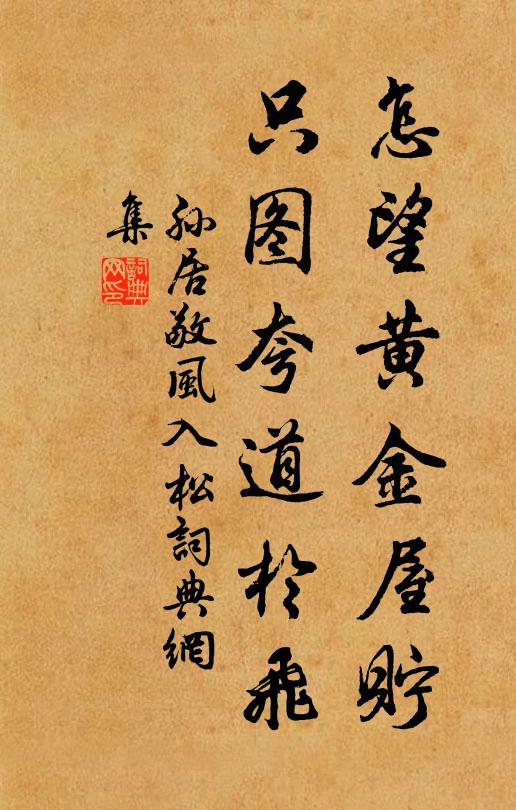 怎望黄金屋貯
只图夸道於飛
孙居敬風入松詞典網
集
詞典
网印